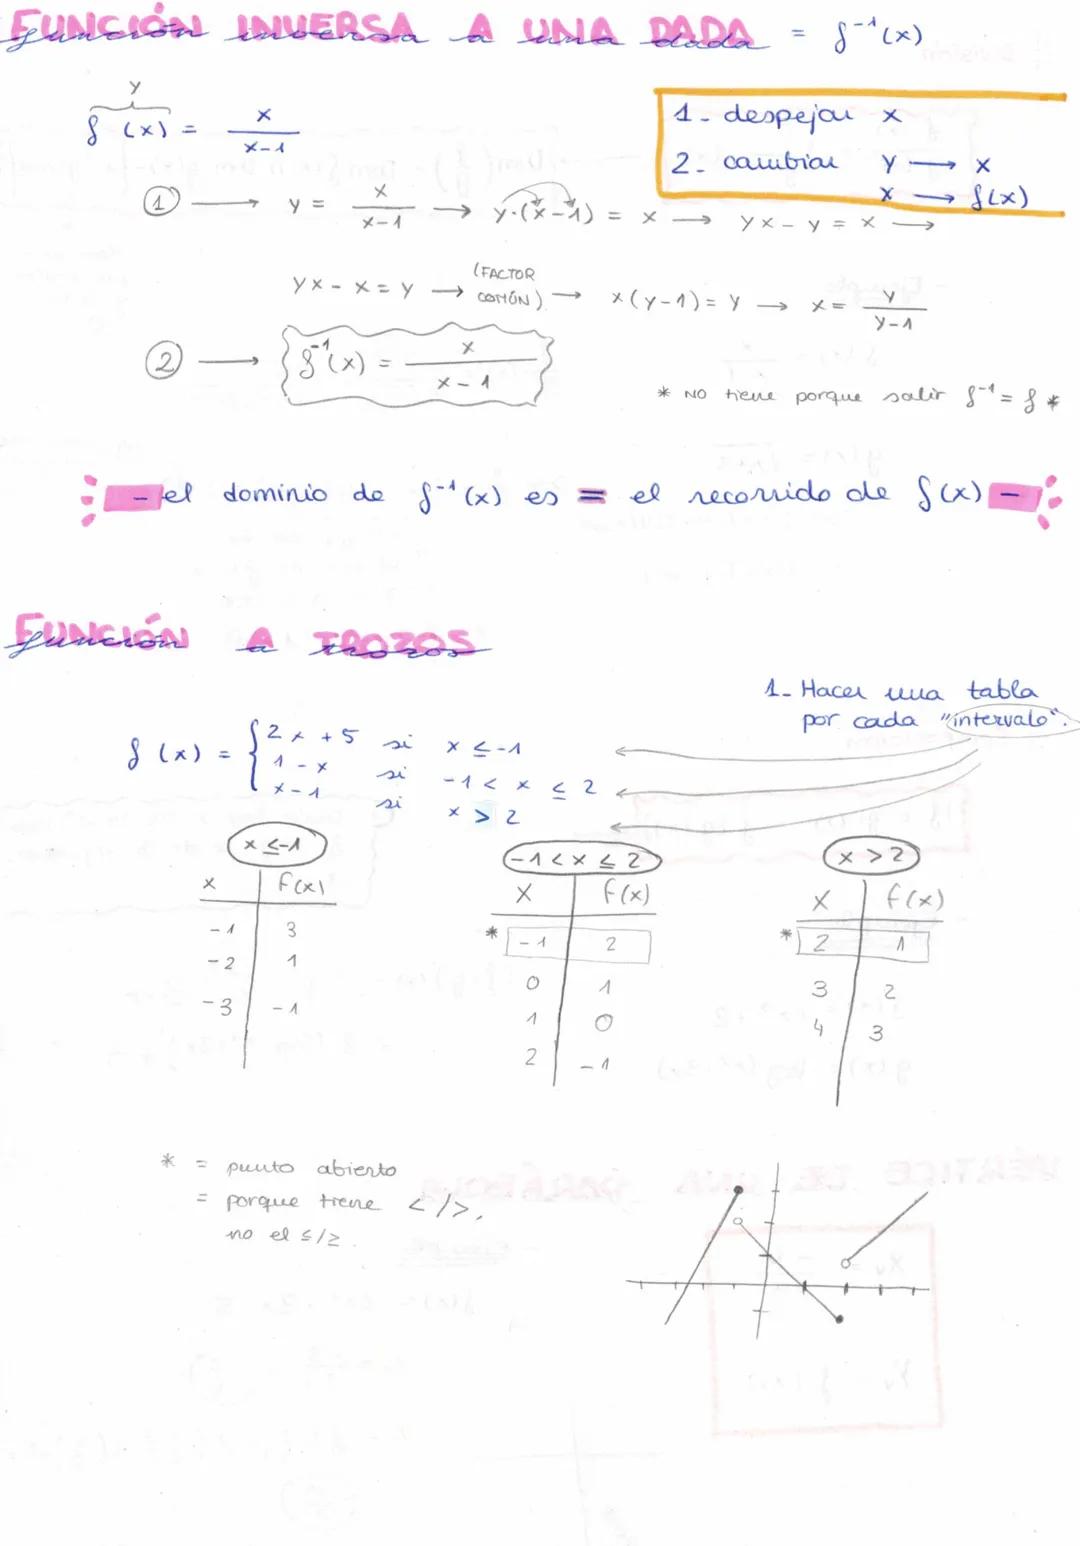 FUNCIÓN INVERSA A UNA DADA = f⁻¹(x)
función inversa a una dada
y
f(x) = x/(x-1)
1- despejar x
2- cambiar y → x
x → f(x)
① → y = x/(x-1) → y·(x-1) = x → yx - y = x →
yx - x = y → (FACTOR COMÚN) → x(y-1) = y → x = y/(y-1)
② → f⁻¹(x) = x/(x-1)
* NO tiene porque salir f⁻¹ = f *
- el dominio de f⁻¹(x) es = el recorrido de f(x) -
FUNCIÓN A TROZOS
función a trozos
1- Hacer una tabla
por cada "intervalo".
f(x) = { 2x + 5 si x ≤ -1
1 - x si -1 < x ≤ 2
x - 1 si x > 2
x ≤ -1
x f(x)
-1 3
-2 1
-3 -1
-1 < x ≤ 2
x f(x)
* -1 2
0 1
1 0
2 -1
x > 2
x f(x)
* 2 1
3 2
4 3
* = punto abierto
= porque tiene </>,
no el ≤/≥.